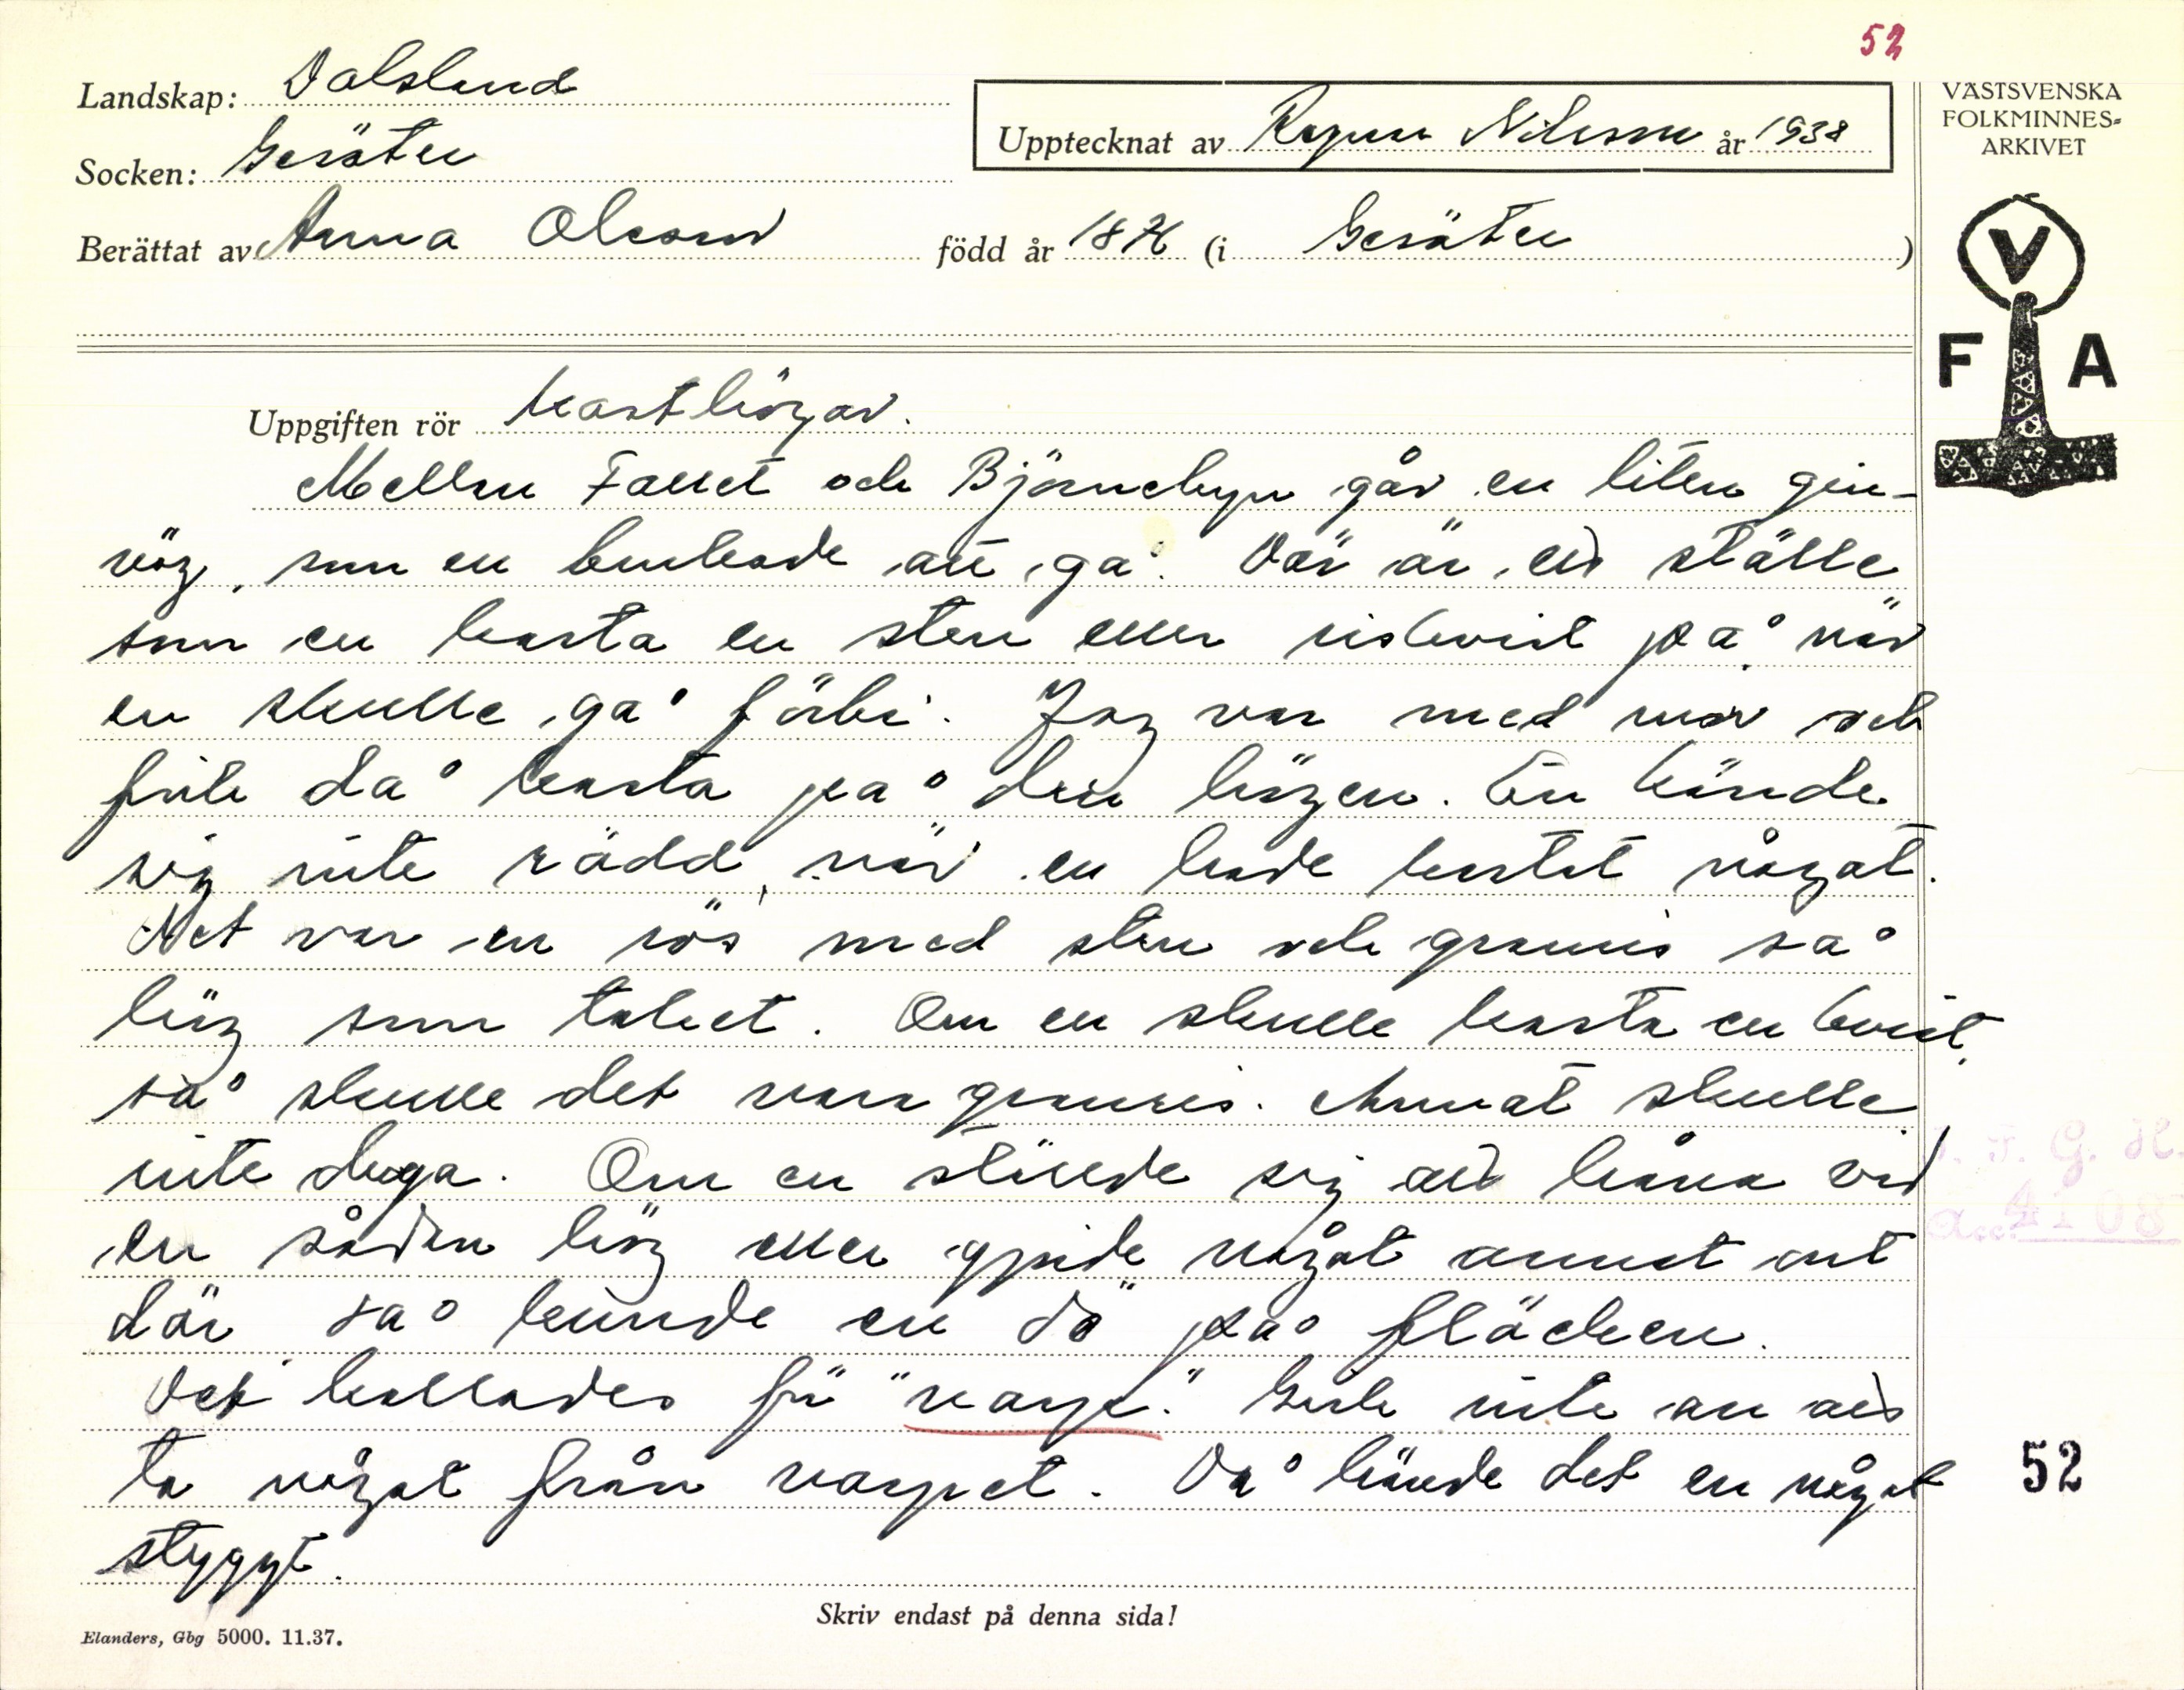 52
Landskap: Dalsland
Socken: Gesäter
Upptecknat av Ragnar Nilsson år 1938
Berättat av Anna Olsson född år 18 (i Gesäter)
VÄSTSVENSKA
FOLKMINNES-
ARKIVET
V
F A
Uppgiften rör kasthögar.
Mellan och Björnebyn går en liten gin-
väg, som en brukade att gå. Där är ett ställe
som en kasta en sten eller riskvist på när
en skulle gå förbi. Jag var med mor och
fick då kasta på den högen. En kände
sig inte rädd, när en hade kastat något.
Det var en rös med sten och granris så
hög som taket. Om en skulle kasta en kvist,
så skulle det vara granris. Annat skulle
inte duga. Om en ställde sig att håna vid
en sådan hög eller gjorde något annat ont
där så kunde en dö på fläcken.
Det kallades för "varp". Gick inte an att
ta något från varpet. Då hände det en något
styggt.
52
Skriv endast på denna sida!
Elanders, Gbg 5000. 11.37.